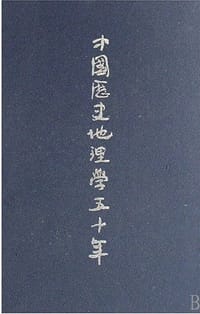 中國歷史地理學五十年